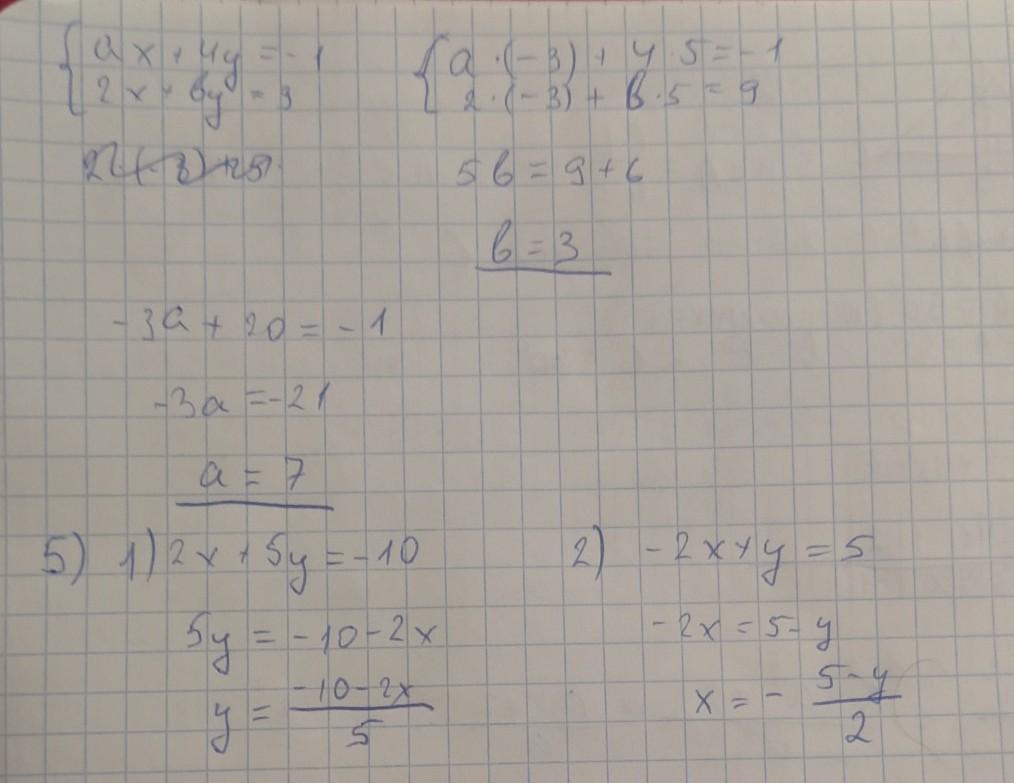 {ax + 4y = -1
2x + by = 9
{a · (-3) + 4 · 5 = -1
2 · (-3) + b · 5 = 9
5b = 9 + 6
b = 3
-3a + 20 = -1
-3a = -21
a = 7
5) 1) 2x + 5y = -10
5y = -10 - 2x
y = \frac{-10 - 2x}{5}
2) -2x + y = 5
-2x = 5 - y
x = - \frac{5 - y}{2}